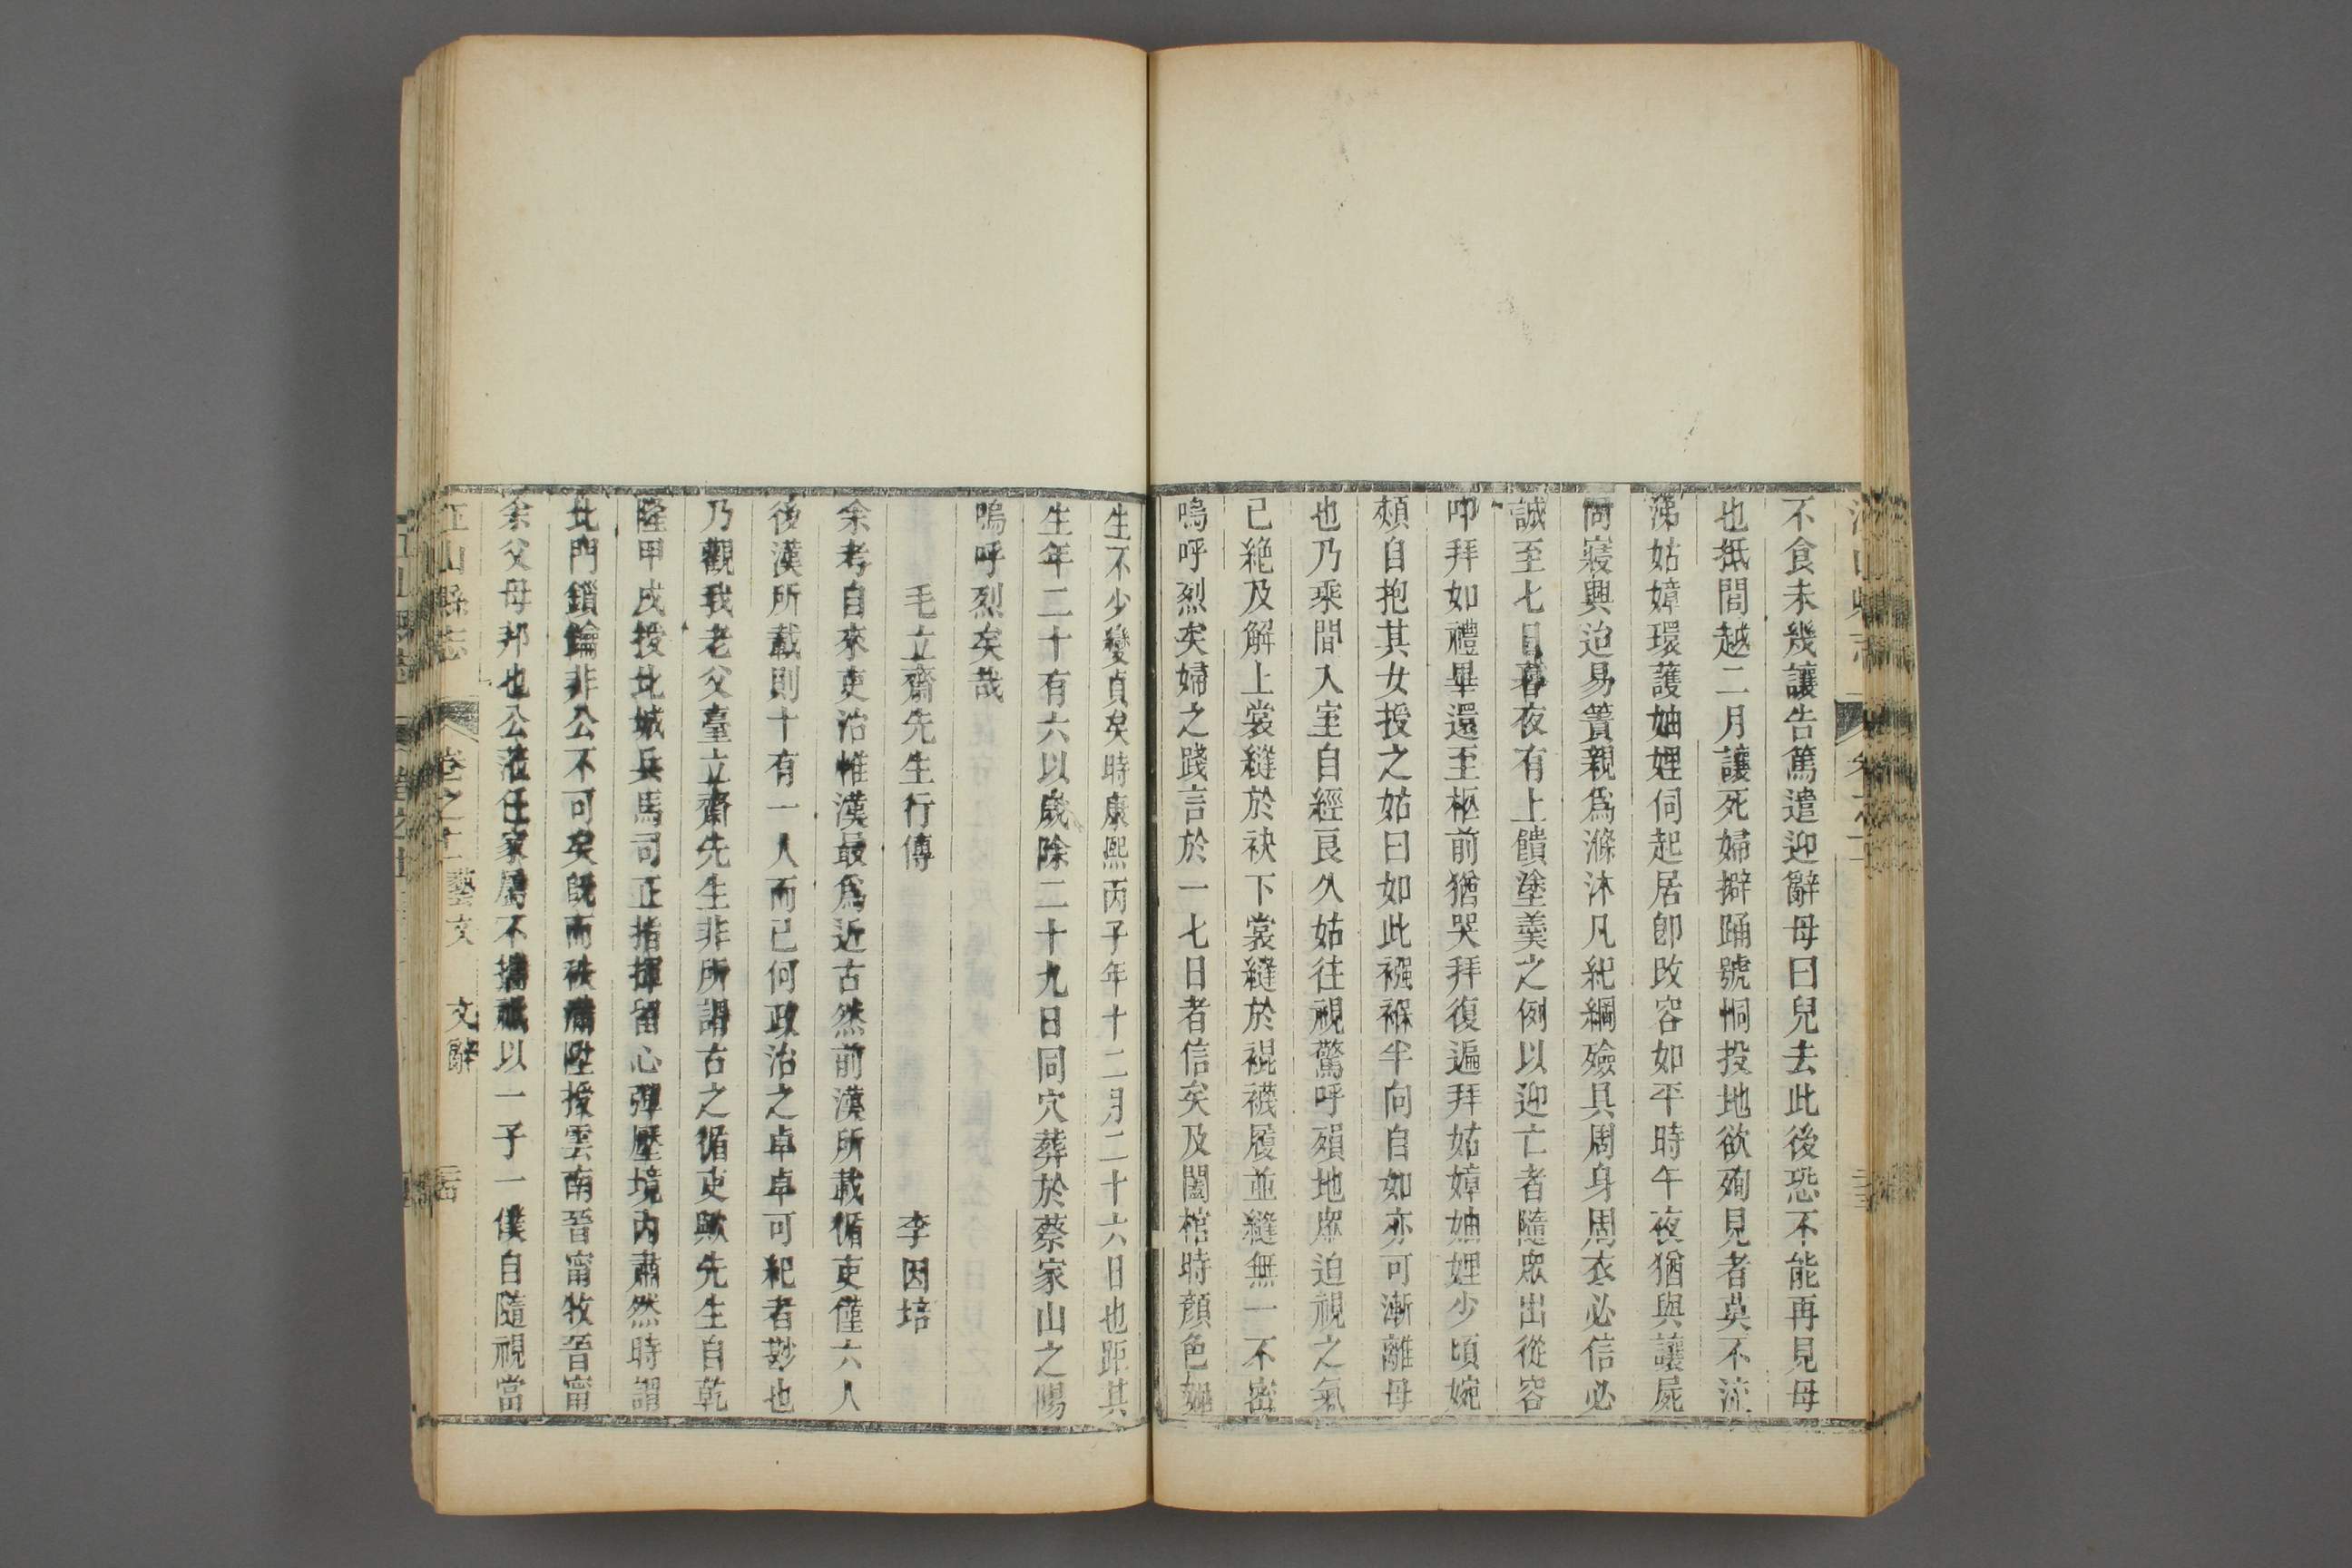 不食未幾讓告篤遣迎辭母曰兒去此後恐不能再見母
也抵間越二月讓死婦擗踊號慟投地欲殉見者莫不流
涕姑嫜環護妯娌伺起居卽改容如平時午夜猶與讓屍
同寢興迨易簀親爲滌沐凡紀綱殮具周身周衣必信必
誠至七日暮夜有上饋塗羹之例以迎亡者隨眾出從容
叩拜如禮畢還至柩前猶哭拜復遍拜姑嫜妯娌少頃婉
頰自抱其女授之姑曰如此襁褓半向自如亦可漸離母
也乃乘間入室自經良久姑往視驚呼殞地眾迫視之氣
已絶及解上裳縫於袂下裳縫於裩襪履並縫無一不密
嗚呼烈矣婦之踐言於一七日者信矣及闔棺時顏色如
生不少變貞矣時康熙丙子年十二月二十六日也距其
生年二十有六以歲除二十九日同穴葬於蔡家山之陽
嗚呼烈矣哉
毛立齋先生行傳 李因培
余考自來吏治惟漢最爲近古然前漢所載循吏僅六人
後漢所載則十有一人而已何政治之卓卓可紀者尠也
乃觀我老父臺立齋先生非所謂古之循吏歟先生自乾
隆甲戌授北城兵馬司正指揮留心彈壓境內肅然時謂
北門鎖鑰非公不可矣既而秩滿陞授雲南晉甯牧晉甯
余父母邦也公蒞任家屬不攜祇以一子一僕自隨視當
江山縣志 卷之十一藝文 文辭